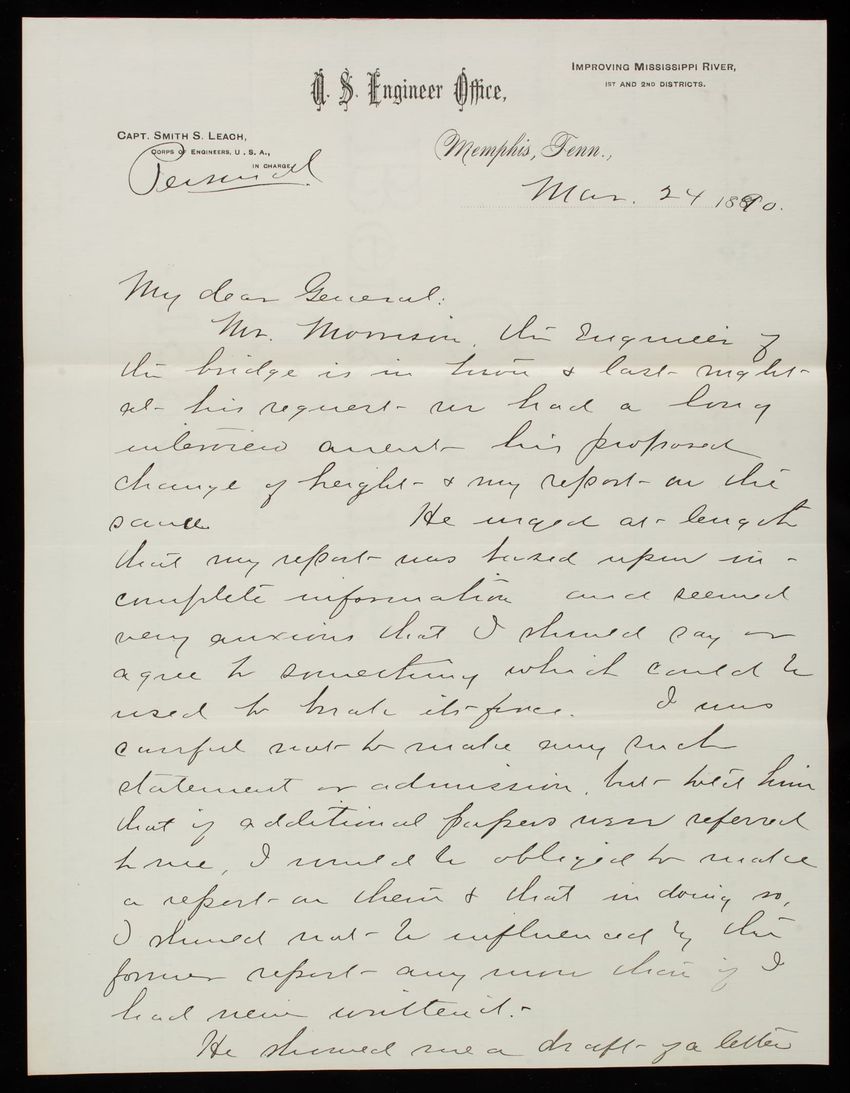 U. S. Engineer Office,
IMPROVING MISSISSIPPI RIVER,
1ST AND 2ND DISTRICTS.
CAPT. SMITH S. LEACH,
CORPS OF ENGINEERS, U. S. A.,
IN CHARGE.
Personal
Memphis, Tenn.,
Mar. 24 1890.
My dear General:
Mr. Morrison, the Engineer of
the bridge is in town & last night
at his request we had a long
interview anent his proposed
change of height & my report on the
same He urged at length
that my report was based upon in-
complete information and seemed
very anxious that I should say or
agree to something which could be
used to break its force. I was
careful not to make any such
statement or admission, but told him
that if additional papers were referred
to me, I would be obliged to make
a report on them & that in doing so,
I should not be influenced by the
former report any more than if I
had never written it.
He showed me a draft of a letter